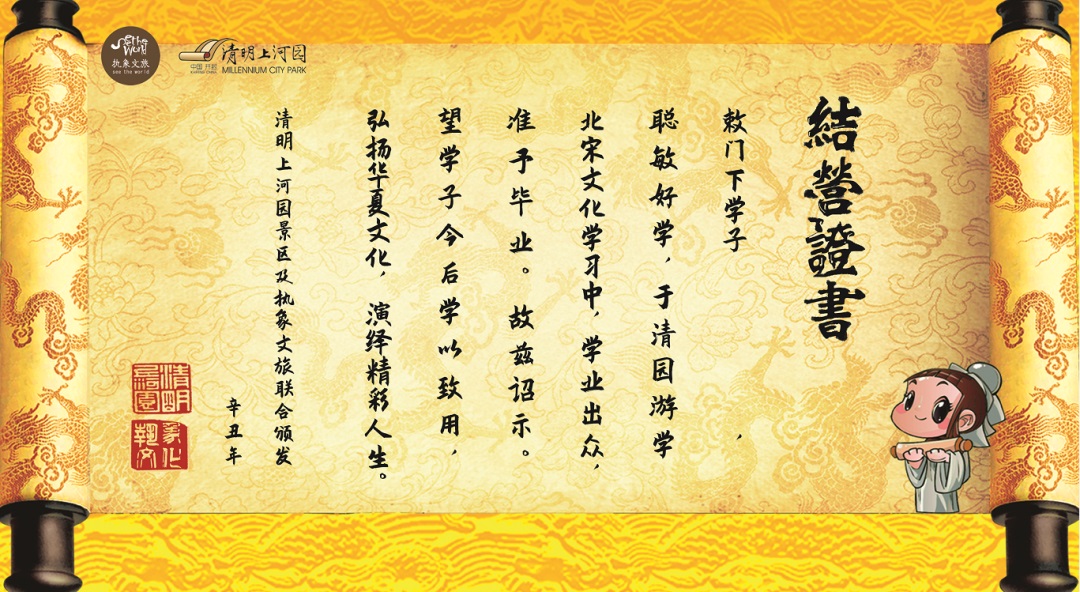 See the World
执象文旅
see the world
清明上河园
中国 开封
MILLENNIUM CITY PARK
結營證書
敕门下学子
，
聪敏好学，于清园游学
北宋文化学习中，学业出众，
准予毕业。故兹诏示。
望学子今后学以致用，
弘扬华夏文化，演绎精彩人生。
清明上河园景区及执象文旅联合颁发
辛丑年